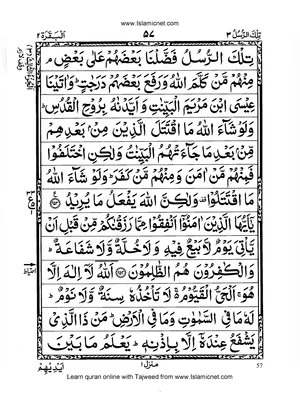 www.Islamicnet.com
تِلْكَ الرُّسُلُ ٣
٥٧
اَلْبَقَرَة ٢
تِلْكَ الرُّسُلُ فَضَّلْنَا بَعْضَهُمْ عَلٰی بَعْضٍ ۘ
مِنْهُمْ مَّنْ كَلَّمَ اللّٰهُ وَرَفَعَ بَعْضَهُمْ دَرَجٰتٍ ؕ وَاٰتَیْنَا
عِیْسَی ابْنَ مَرْیَمَ الْبَیِّنٰتِ وَاَیَّدْنٰهُ بِرُوْحِ الْقُدُسِ ؕ
وَلَوْ شَآءَ اللّٰهُ مَا اقْتَتَلَ الَّذِیْنَ مِنْۢ بَعْدِهِمْ
مِّنْۢ بَعْدِ مَا جَآءَتْهُمُ الْبَیِّنٰتُ وَلٰكِنِ اخْتَلَفُوْا
فَمِنْهُمْ مَّنْ اٰمَنَ وَمِنْهُمْ مَّنْ كَفَرَ ؕ وَلَوْ شَآءَ اللّٰهُ
مَا اقْتَتَلُوْا ۫ وَلٰكِنَّ اللّٰهَ یَفْعَلُ مَا یُرِیْدُ ﴿۲۵۳﴾
یٰۤاَیُّهَا الَّذِیْنَ اٰمَنُوْۤا اَنْفِقُوْا مِمَّا رَزَقْنٰكُمْ مِّنْ قَبْلِ اَنْ
یَّاْتِیَ یَوْمٌ لَّا بَیْعٌ فِیْهِ وَلَا خُلَّةٌ وَّلَا شَفَاعَةٌ ؕ
وَالْكٰفِرُوْنَ هُمُ الظّٰلِمُوْنَ ﴿۲۵۴﴾ اَللّٰهُ لَاۤ اِلٰهَ اِلَّا
هُوَ ۚ اَلْحَیُّ الْقَیُّوْمُ ۚ لَا تَاْخُذُهٗ سِنَةٌ وَّلَا نَوْمٌ ؕ
لَهٗ مَا فِی السَّمٰوٰتِ وَمَا فِی الْاَرْضِ ؕ مَنْ ذَا الَّذِیْ
یَشْفَعُ عِنْدَهٗۤ اِلَّا بِاِذْنِهٖ ؕ یَعْلَمُ مَا بَیْنَ
اَیْدِیْهِمْ
منزل ١
57
Learn quran online with Tajweed from www.Islamicnet.com